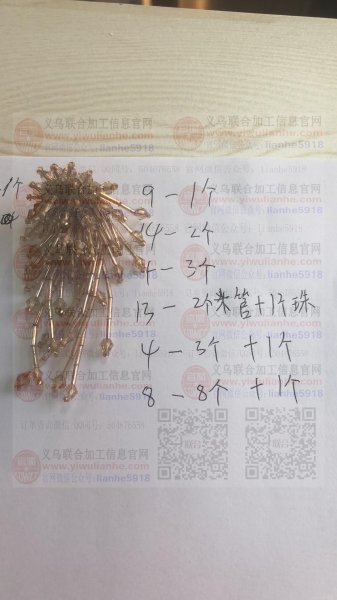 9 - 1个
14 - 2个
- 3个
13 - 2个米管+1个珠
4 - 3个 +1个
8 - 8个 +1个
1个
义乌联合加工信息官网
www.yiwulianhe.com
官网微信公众号:lianhe5918